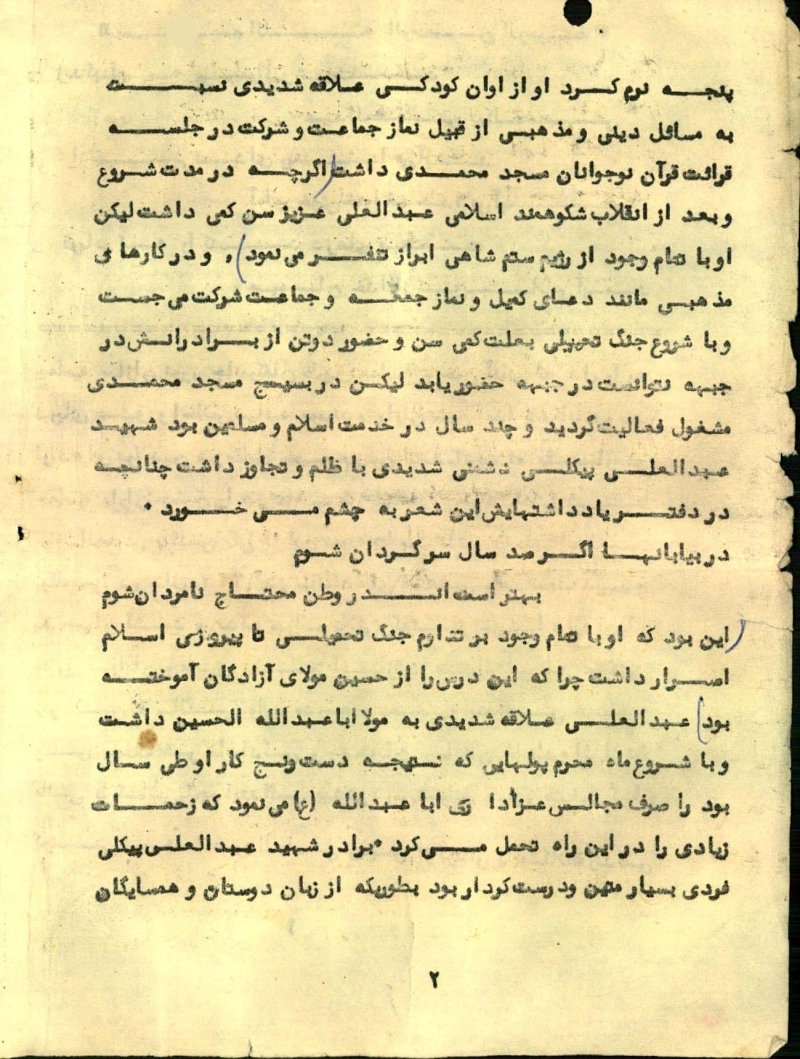 پنجه نرم کرد او از اوان کودکی علاقه شدیدی نسبت
به مسائل دینی و مذهبی از قبیل نماز جماعت و شرکت در جلسه
قرائت قرآن نوجوانان مسجد محمدی داشت (اگرچه در مدت شروع
و بعد از انقلاب شکوهمند اسلامی عبدالعلی عزیز سن کمی داشت لیکن
او با تمام وجود از رژیم ستم شاهی ابراز تنفر می نمود) , و در کارها ی
مذهبی مانند دعای کمیل و نماز جمعه و جماعت شرکت می جست
و با شروع جنگ تحمیلی بعلت کمی سن و حضور دو تن از برادرانش در
جبهه نتوانست در جبهه حضور یابد لیکن در بسیج مسجد محمدی
مشغول فعالیت گردید و چند سال در خدمت اسلام و مسلمین بود شهید
عبدالعلی پیکلی دشمنی شدیدی با ظلم و تجاوز داشت چنانچه
در دفتر یادداشتهایش این شعر به چشم می خورد .
در بیابانها اگر صد سال سرگردان شوم
بهتر است اندر وطن محتاج نامردان شوم
(این بود که او با تمام وجود بر تداوم جنگ تحمیلی تا پیروزی اسلام
اصرار داشت چرا که این درس را از حسین مولای آزادگان آموخته
بود) عبدالعلی علاقه شدیدی به مولا اباعبدالله الحسین داشت
و با شروع ماه محرم پولهایی که نتیجه دست رنج کار او طی سال
بود را صرف مجالس عزادا ری ابا عبدالله (ع) می نمود که زحمات
زیادی را در این راه تحمل می کرد . برادر شهید عبدالعلی پیکلی
فردی بسیار متین و درست کردار بود بطوریکه از زبان دوستان و همسایگان
۲